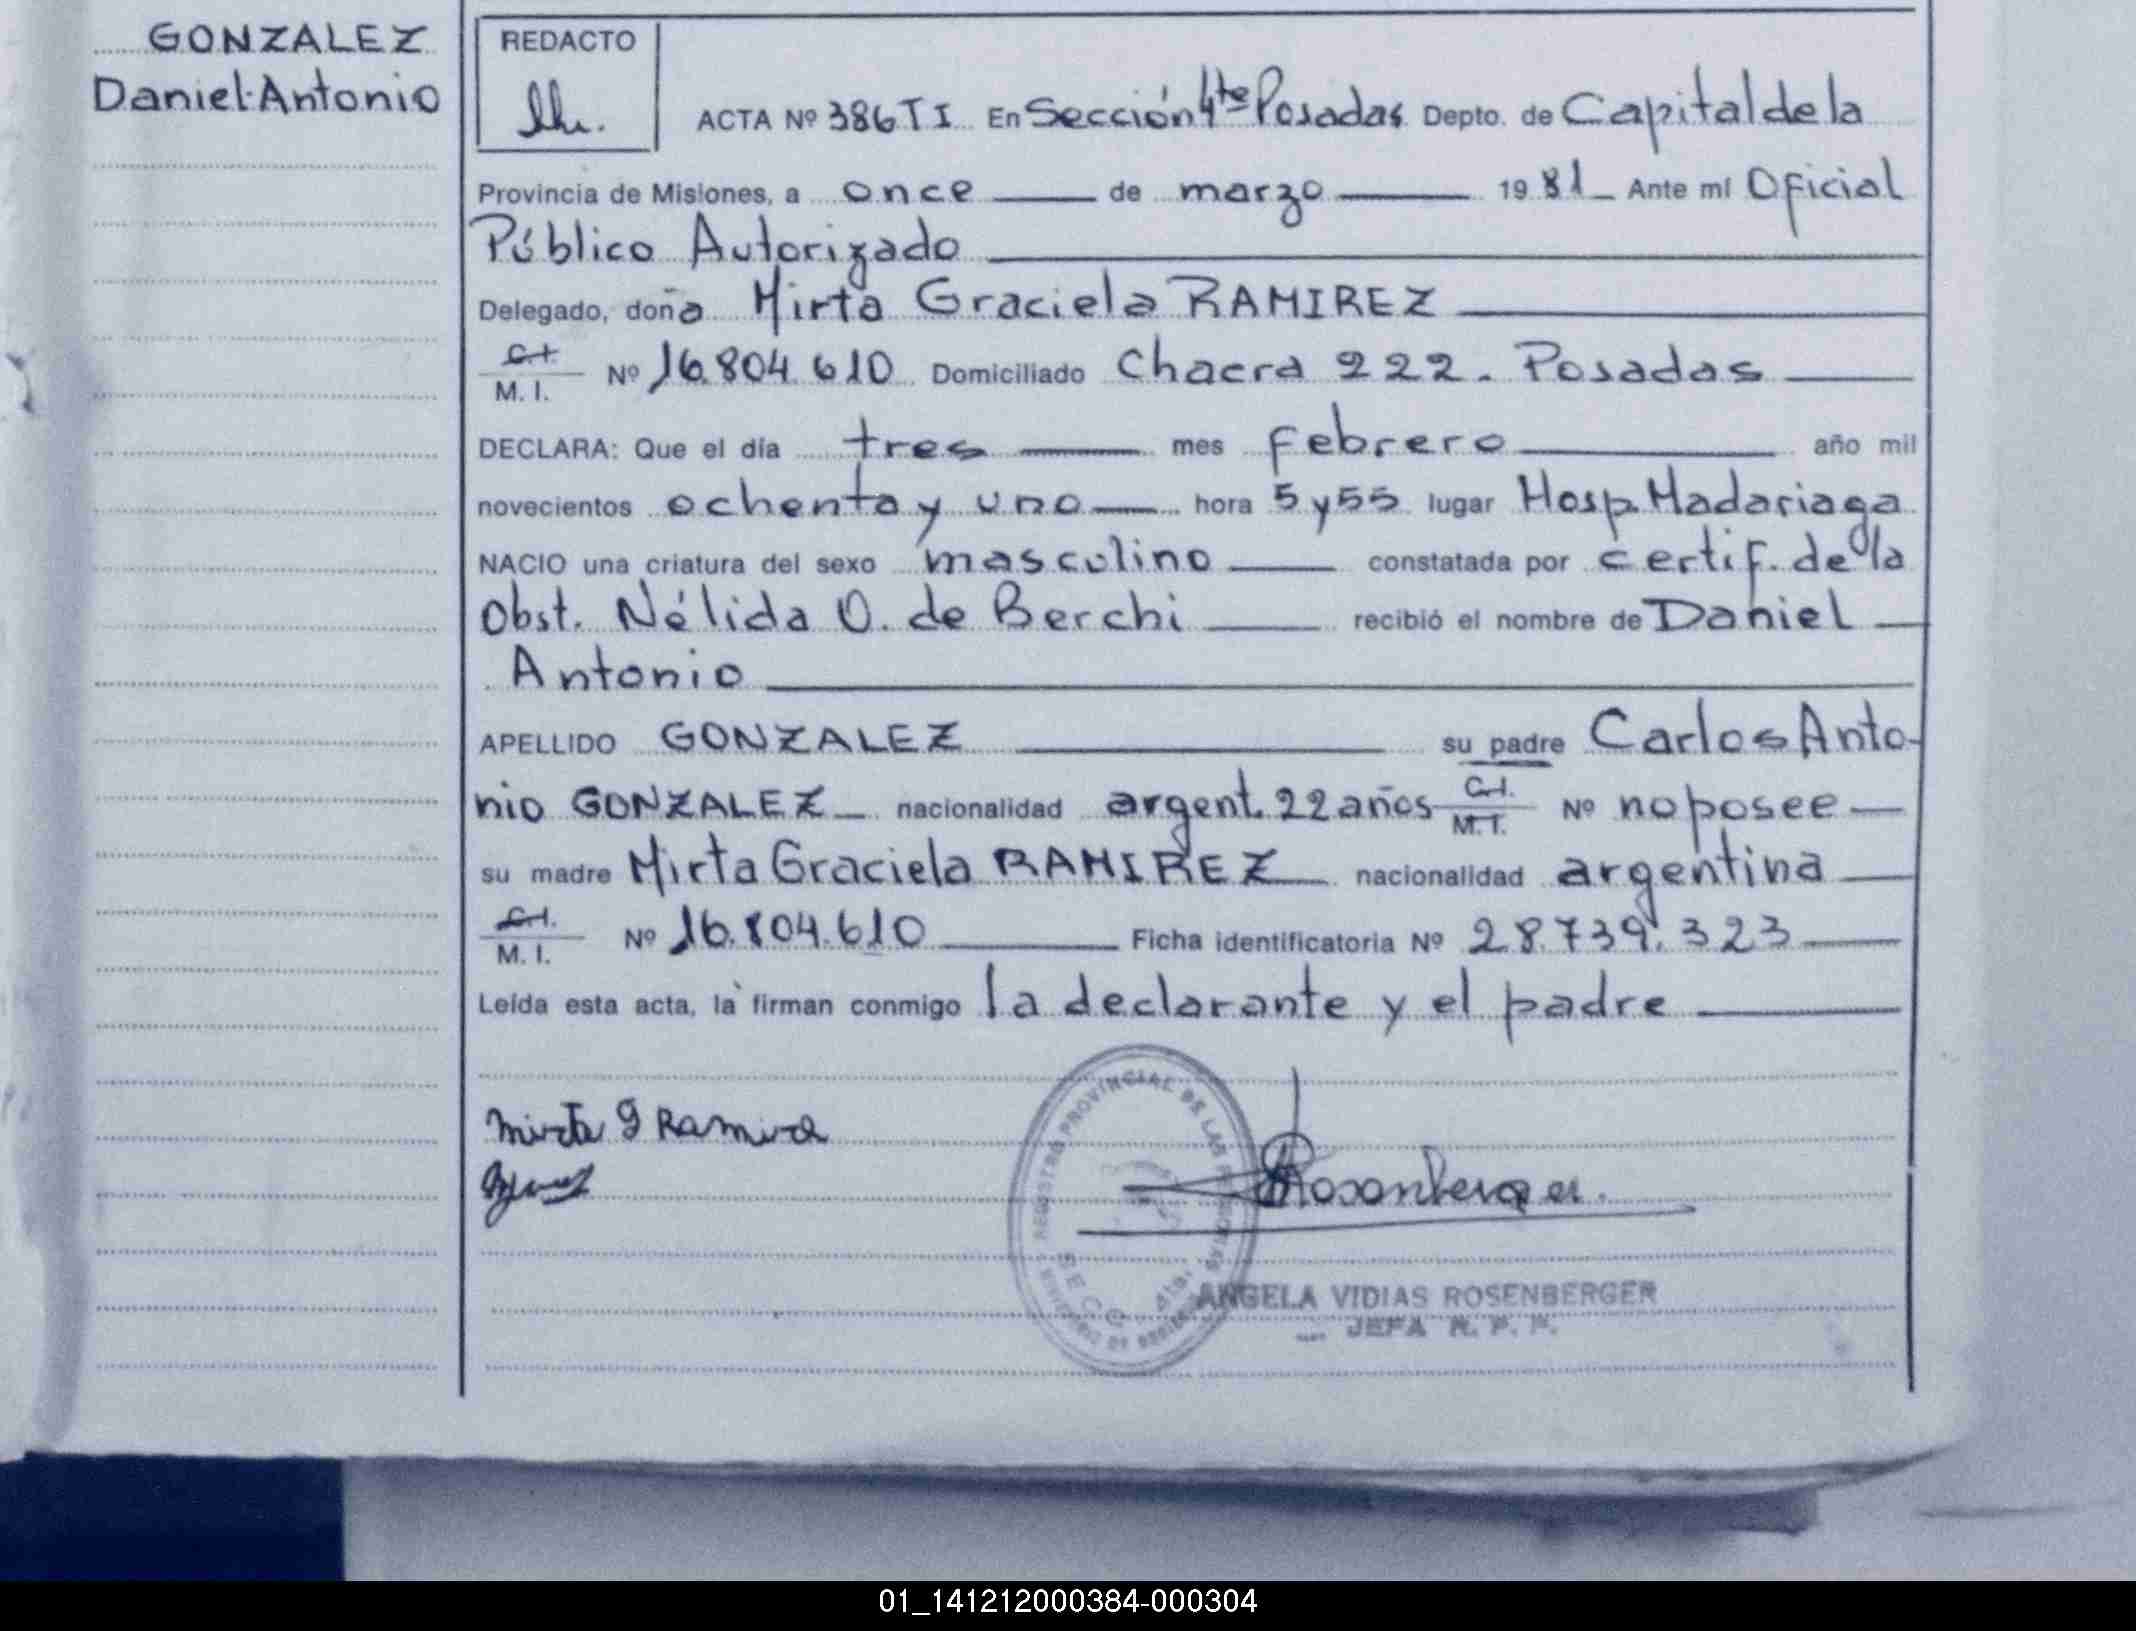 GONZALEZ
Daniel Antonio
REDACTO
ACTA Nº 386 T I En Sección 4ta Posadas Depto. de Capital de la
Provincia de Misiones, a once de marzo 1981 Ante mí Oficial
Público Autorizado
Delegado, doña Mirta Graciela RAMIREZ
C.I.
M. I. Nº 16.804.610 Domiciliado Chacra 222. Posadas
DECLARA: Que el día tres mes febrero año mil
novecientos ochenta y uno hora 5 y 55 lugar Hosp. Madariaga
NACIO una criatura del sexo masculino constatada por certif. de la
Obst. Nélida O. de Berchi recibió el nombre de Daniel
Antonio
APELLIDO GONZALEZ su padre Carlos Anto-
nio GONZALEZ nacionalidad argent. 22 años C.I. M.I. Nº no posee
su madre Mirta Graciela RAMIREZ nacionalidad argentina
C.I.
M. I. Nº 16.804.610 Ficha identificatoria Nº 28.739.323
Leída esta acta, la firman conmigo la declarante y el padre
REGISTRO PROVINCIAL DE LAS PERSONAS
SECC. 4ta.
Mirta G Ramirez
Rosenberger
ANGELA VIDIAS ROSENBERGER
JEFA R. P. P.
01_141212000384-000304